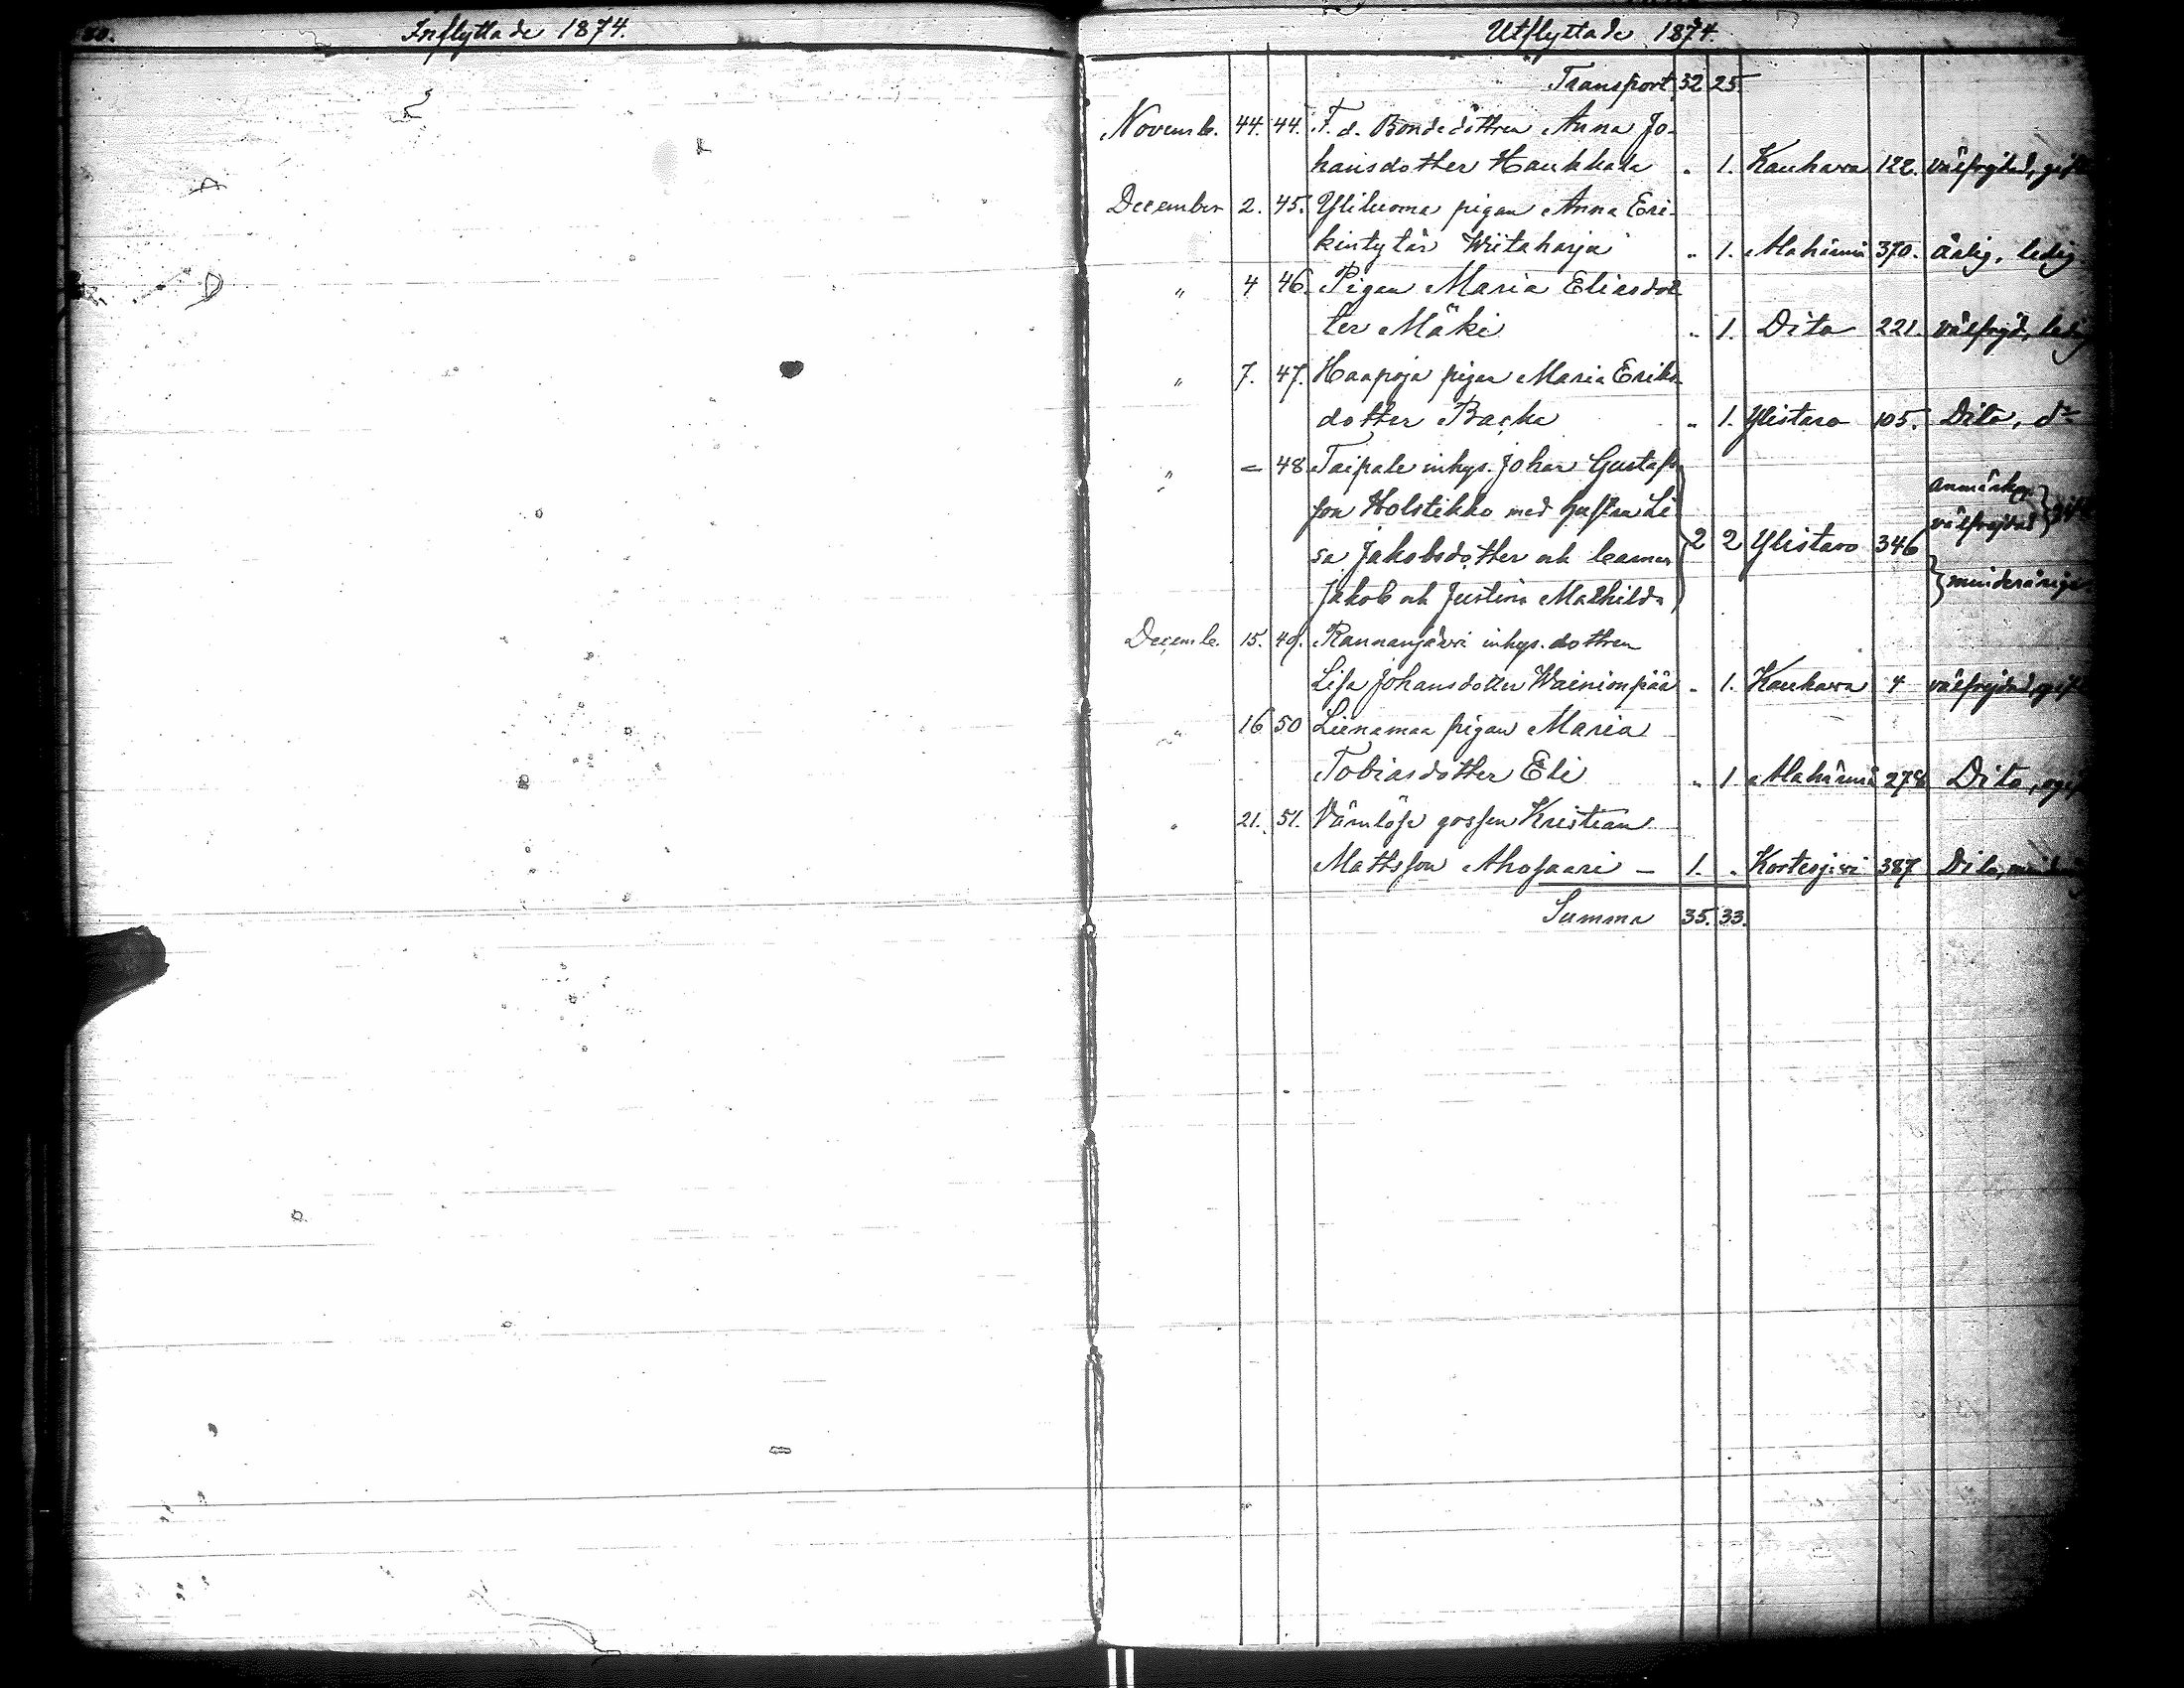 80. Inflyttade 1874.
Utflyttade 1874.
Transport 32 25.
Novemb. 44. 44. F. d. Bondedottren Anna Jo-
hansdotter Haukkala „ 1. Kauhava 122. välfrejdad, gift
December 2. 45. Yliluoma pigan Anna Eri-
kintytär Wiitaharja „ 1. Alahärmä 370. ärlig, ledig
„ 4 46. Pigan Maria Eliasdot-
ter Mäki „ 1. Dito 221. välfrejd, ledig
„ 7. 47. Haapoja pigan Maria Eriks-
dotter Backa „ 1. Ylistaro 105. Dito, do
„ = 48 Taipale inhys. Johan Gustafs-
son Holstikko med hustru Li-
sa Jakobsdotter och barnen 2 2 Ylistaro 346 välfrejdad
Jakob och Justina Mathilda minderåriga
Decemb. 15. 49. Rannanjärvi inhys. dottren
Lisa Johansdotter Wainionpää „ 1. Kauhava 4 välfrejdad, gift
„ 16 50 Liinamaa pigan Maria
Tobiasdotter Eli „ 1 Alahärmä 278 Dito, ogif
„ 21. 51. Värnlöse gossen Kristian
Mattsson Ahosaari – 1. „ Kortesjärvi 387 Dito,
Summa 35. 33.